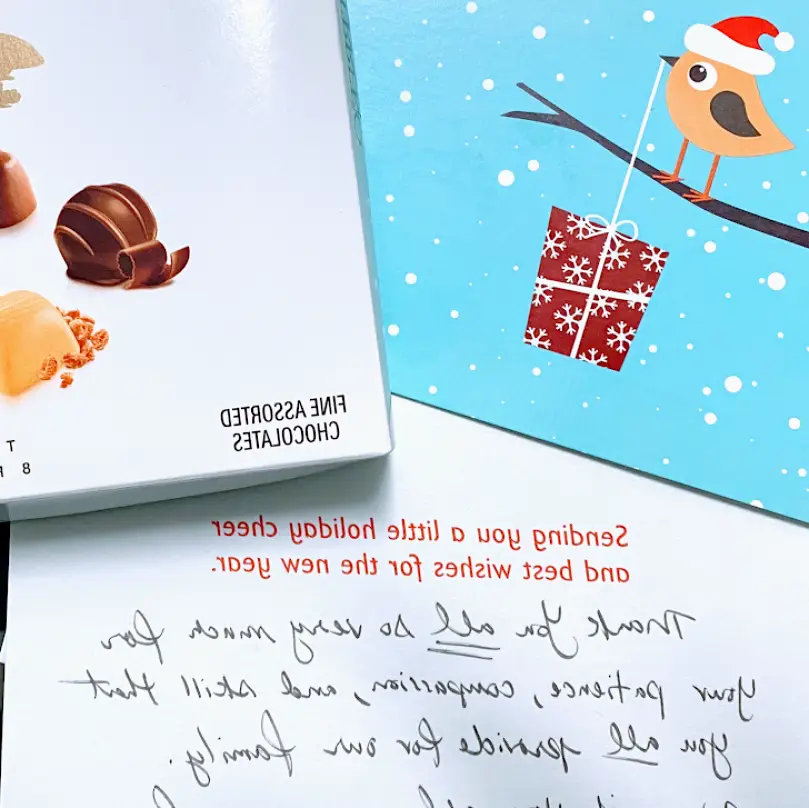 FINE ASSORTED
CHOCOLATES
T
8 P
Sending you a little holiday cheer
and best wishes for the new year.
Thank you all so very much for
your patience, compassion, and skill that
you all provide for our family.